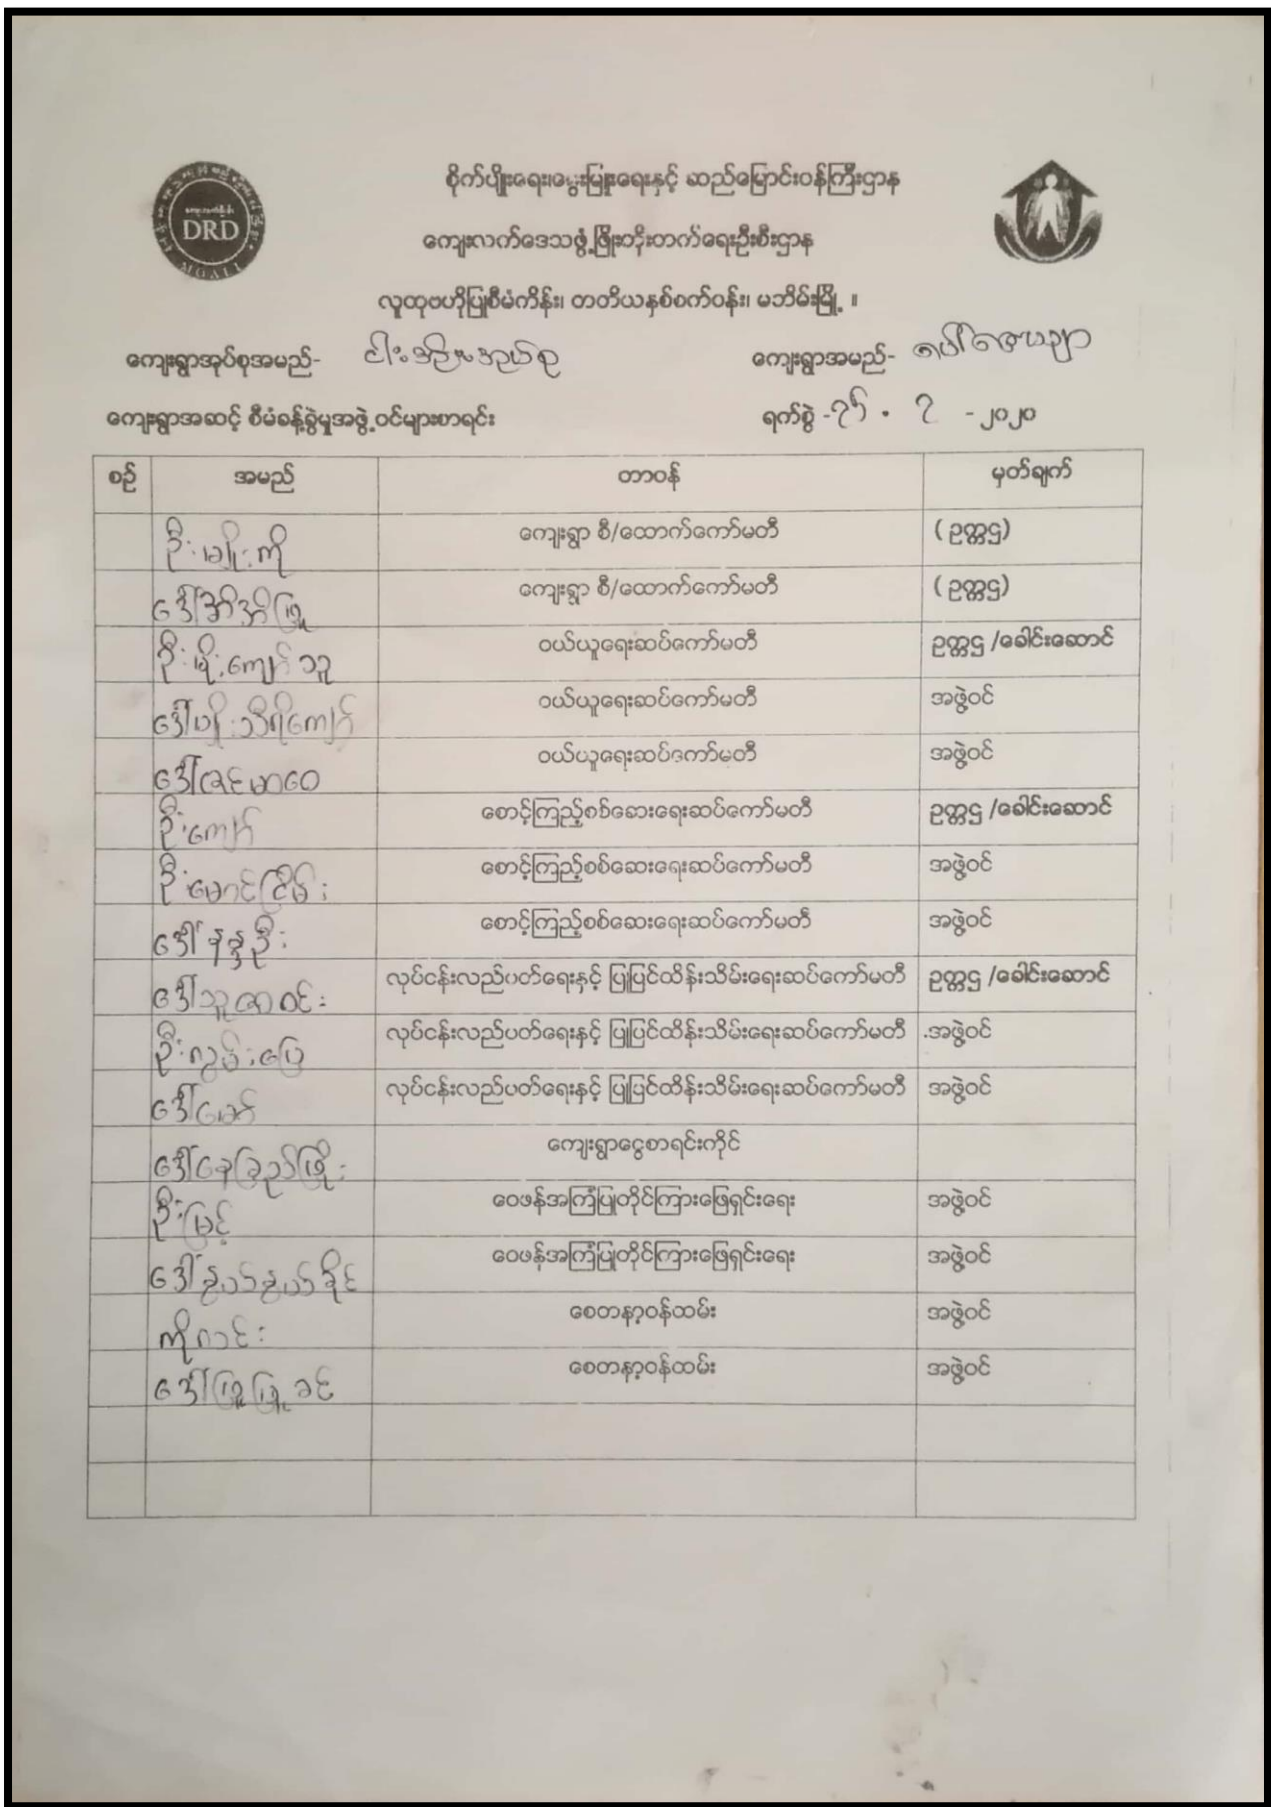 စိုက်ပျိုးရေး၊မွေးမြူရေးနှင့် ဆည်မြောင်းဝန်ကြီးဌာန
DRD
ကျေးလက်ဒေသဖွံ့ဖြိုးတိုးတက်ရေးဦးစီးဌာန
လူထုဗဟိုပြုစီမံကိန်း၊ တတိယနှစ်စက်ဝန်း၊ မဘိမ်းမြို့ ။
ကျေးရွာအုပ်စုအမည်- ကျေးရွာအမည်-
ကျေးရွာအဆင့် စီမံခန့်ခွဲမှုအဖွဲ့ဝင်များစာရင်း ရက်စွဲ - ၇ - ၂၀၂၀
စဉ် အမည် တာဝန် မှတ်ချက်
ဦးမျိုးကို ကျေးရွာ စီ/ထောက်ကော်မတီ (ဥက္ကဌ)
ဒေါ်အိအိဖြူ ကျေးရွာ စီ/ထောက်ကော်မတီ (ဥက္ကဌ)
ဦးမိုးကျော်သူ ဝယ်ယူရေးဆပ်ကော်မတီ ဥက္ကဌ /ခေါင်းဆောင်
ဒေါ်ပျိုးသီရိကျော် ဝယ်ယူရေးဆပ်ကော်မတီ အဖွဲ့ဝင်
ဒေါ်ဇင်မာဝေ ဝယ်ယူရေးဆပ်ကော်မတီ အဖွဲ့ဝင်
ဦးကျော် စောင့်ကြည့်စစ်ဆေးရေးဆပ်ကော်မတီ ဥက္ကဌ /ခေါင်းဆောင်
ဦးမောင်ငြိမ်း စောင့်ကြည့်စစ်ဆေးရေးဆပ်ကော်မတီ အဖွဲ့ဝင်
ဒေါ်နန္ဒဦး စောင့်ကြည့်စစ်ဆေးရေးဆပ်ကော်မတီ အဖွဲ့ဝင်
ဒေါ်သူဇာဝင်း လုပ်ငန်းလည်ပတ်ရေးနှင့် ပြုပြင်ထိန်းသိမ်းရေးဆပ်ကော်မတီ ဥက္ကဌ /ခေါင်းဆောင်
ဦးလွမ်းပြေ လုပ်ငန်းလည်ပတ်ရေးနှင့် ပြုပြင်ထိန်းသိမ်းရေးဆပ်ကော်မတီ အဖွဲ့ဝင်
ဒေါ်မော် လုပ်ငန်းလည်ပတ်ရေးနှင့် ပြုပြင်ထိန်းသိမ်းရေးဆပ်ကော်မတီ အဖွဲ့ဝင်
ဒေါ်နေခြည်ဖြိုး ကျေးရွာငွေစာရင်းကိုင်
ဦးမြင့် ဝေဖန်အကြံပြုတိုင်ကြားဖြေရှင်းရေး အဖွဲ့ဝင်
ဒေါ်နွယ်နွယ်ခိုင် ဝေဖန်အကြံပြုတိုင်ကြားဖြေရှင်းရေး အဖွဲ့ဝင်
ကိုလင်း စေတနာ့ဝန်ထမ်း အဖွဲ့ဝင်
ဒေါ်ဖြူဖြူခင် စေတနာ့ဝန်ထမ်း အဖွဲ့ဝင်